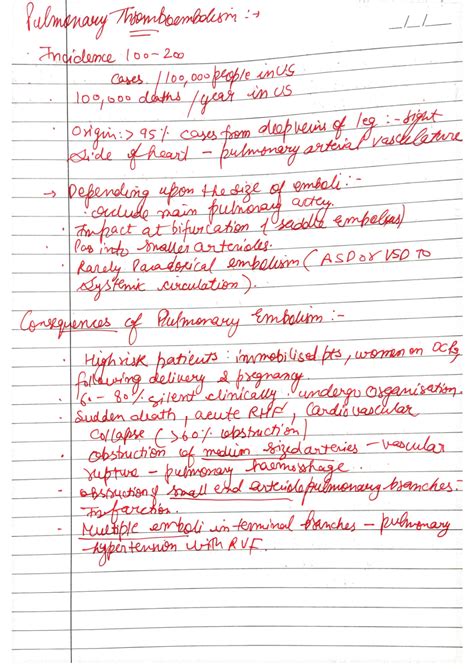 Pulmonary Thromboembolism :→
__/__/__
· Incidence 100-200
cases /100,000 people in US
· 100,000 deaths /year in US
· Origin :> 95% cases from deep veins of leg :- right
side of heart - pulmonary arterial vasculature
→ Depending upon the size of emboli :-
: occlude main pulmonary artery.
· Impact at bifurcation (saddle embolus)
· Pass into smaller arterioles.
· Rarely Paradoxical embolism (ASD or VSD to
systemic circulation).
Consequences of Pulmonary Embolism :-
· High risk patients : immobilised pts, women on OCPs,
following delivery & pregnancy.
· 60-80% silent clinically : undergo Organisation.
· Sudden death, acute RHF, Cardiovascular
collapse (>60% obstruction)
· Obstruction of medium sized arteries - vascular
rupture - pulmonary haemorrhage.
· obstruction of small end arteriole pulmonary branches :-
Infarction.
· Multiple emboli in terminal branches - pulmonary
-hypertension with RVF.